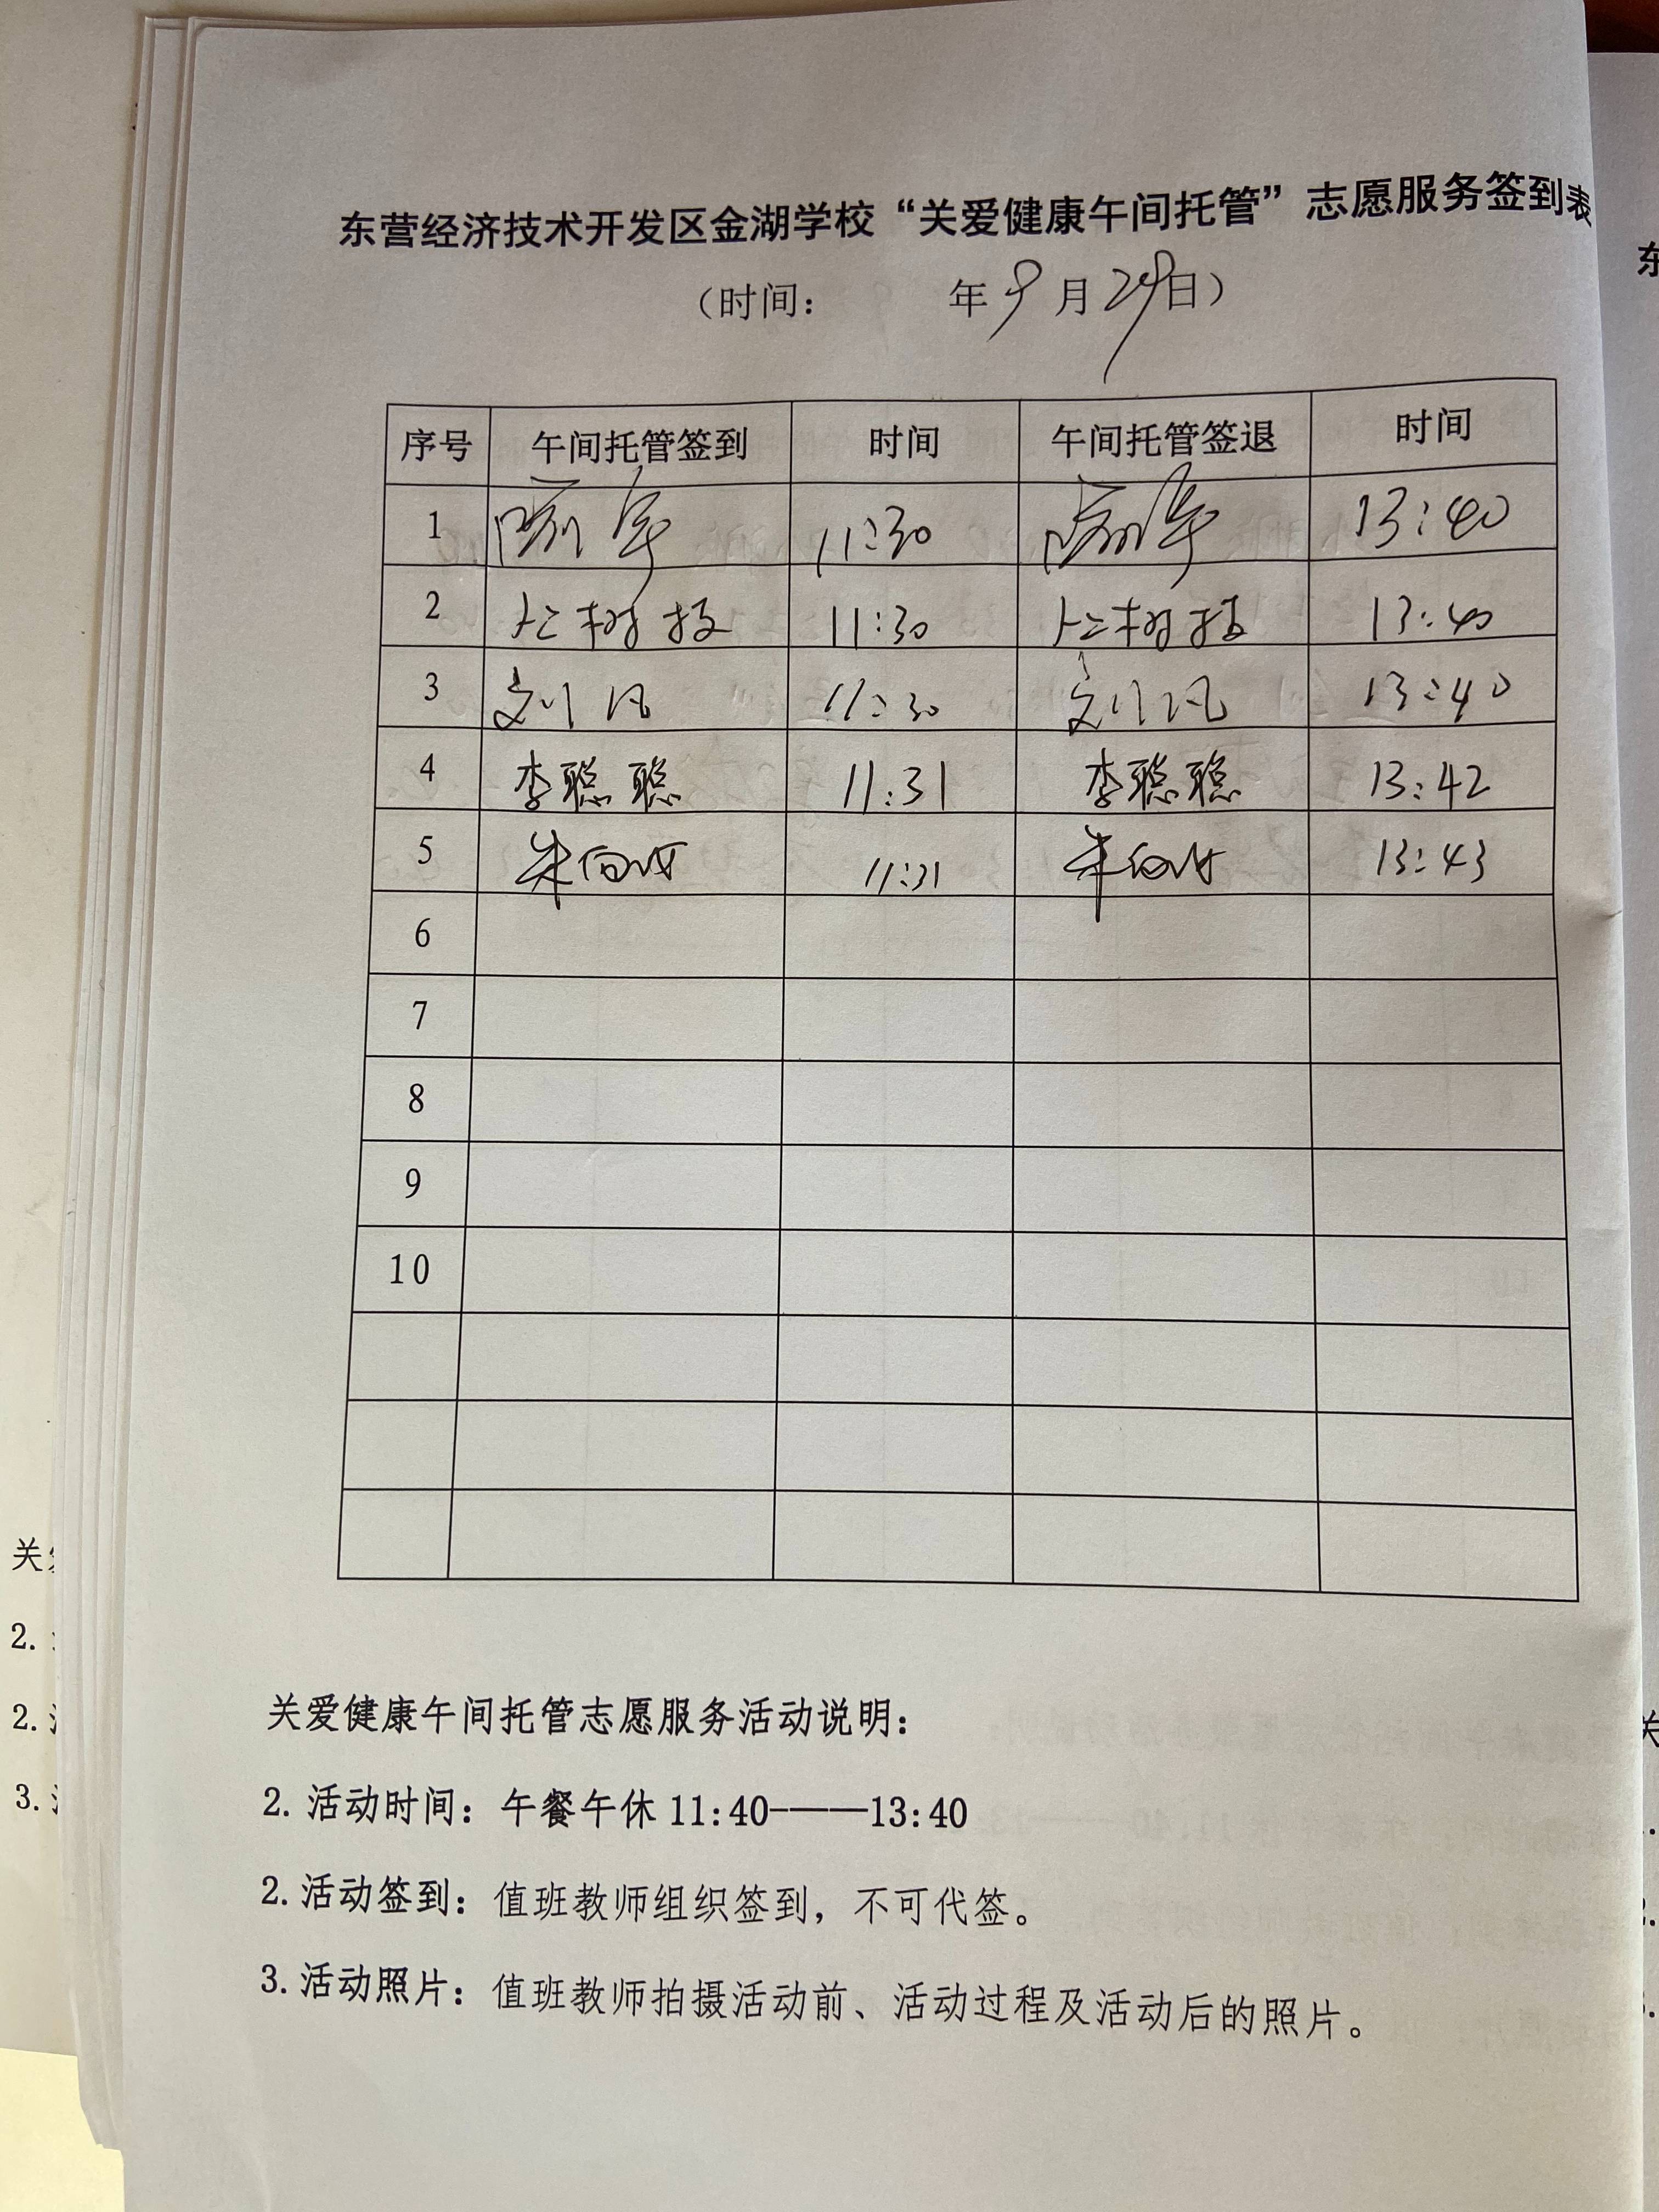 东营经济技术开发区金湖学校“关爱健康午间托管”志愿服务签到表
（时间： 年9月29日）
序号 午间托管签到 时间 午间托管签退 时间
1 11:30 13:40
2 11:30 13:40
3 刘凡 11:30 刘凡 13:40
4 李聪聪 11:31 李聪聪 13:42
5 11:31 13:43
6
7
8
9
10
关爱健康午间托管志愿服务活动说明：
2. 活动时间：午餐午休 11:40————13:40
2. 活动签到：值班教师组织签到，不可代签。
3. 活动照片：值班教师拍摄活动前、活动过程及活动后的照片。
关
2.
2.
3.
东
关